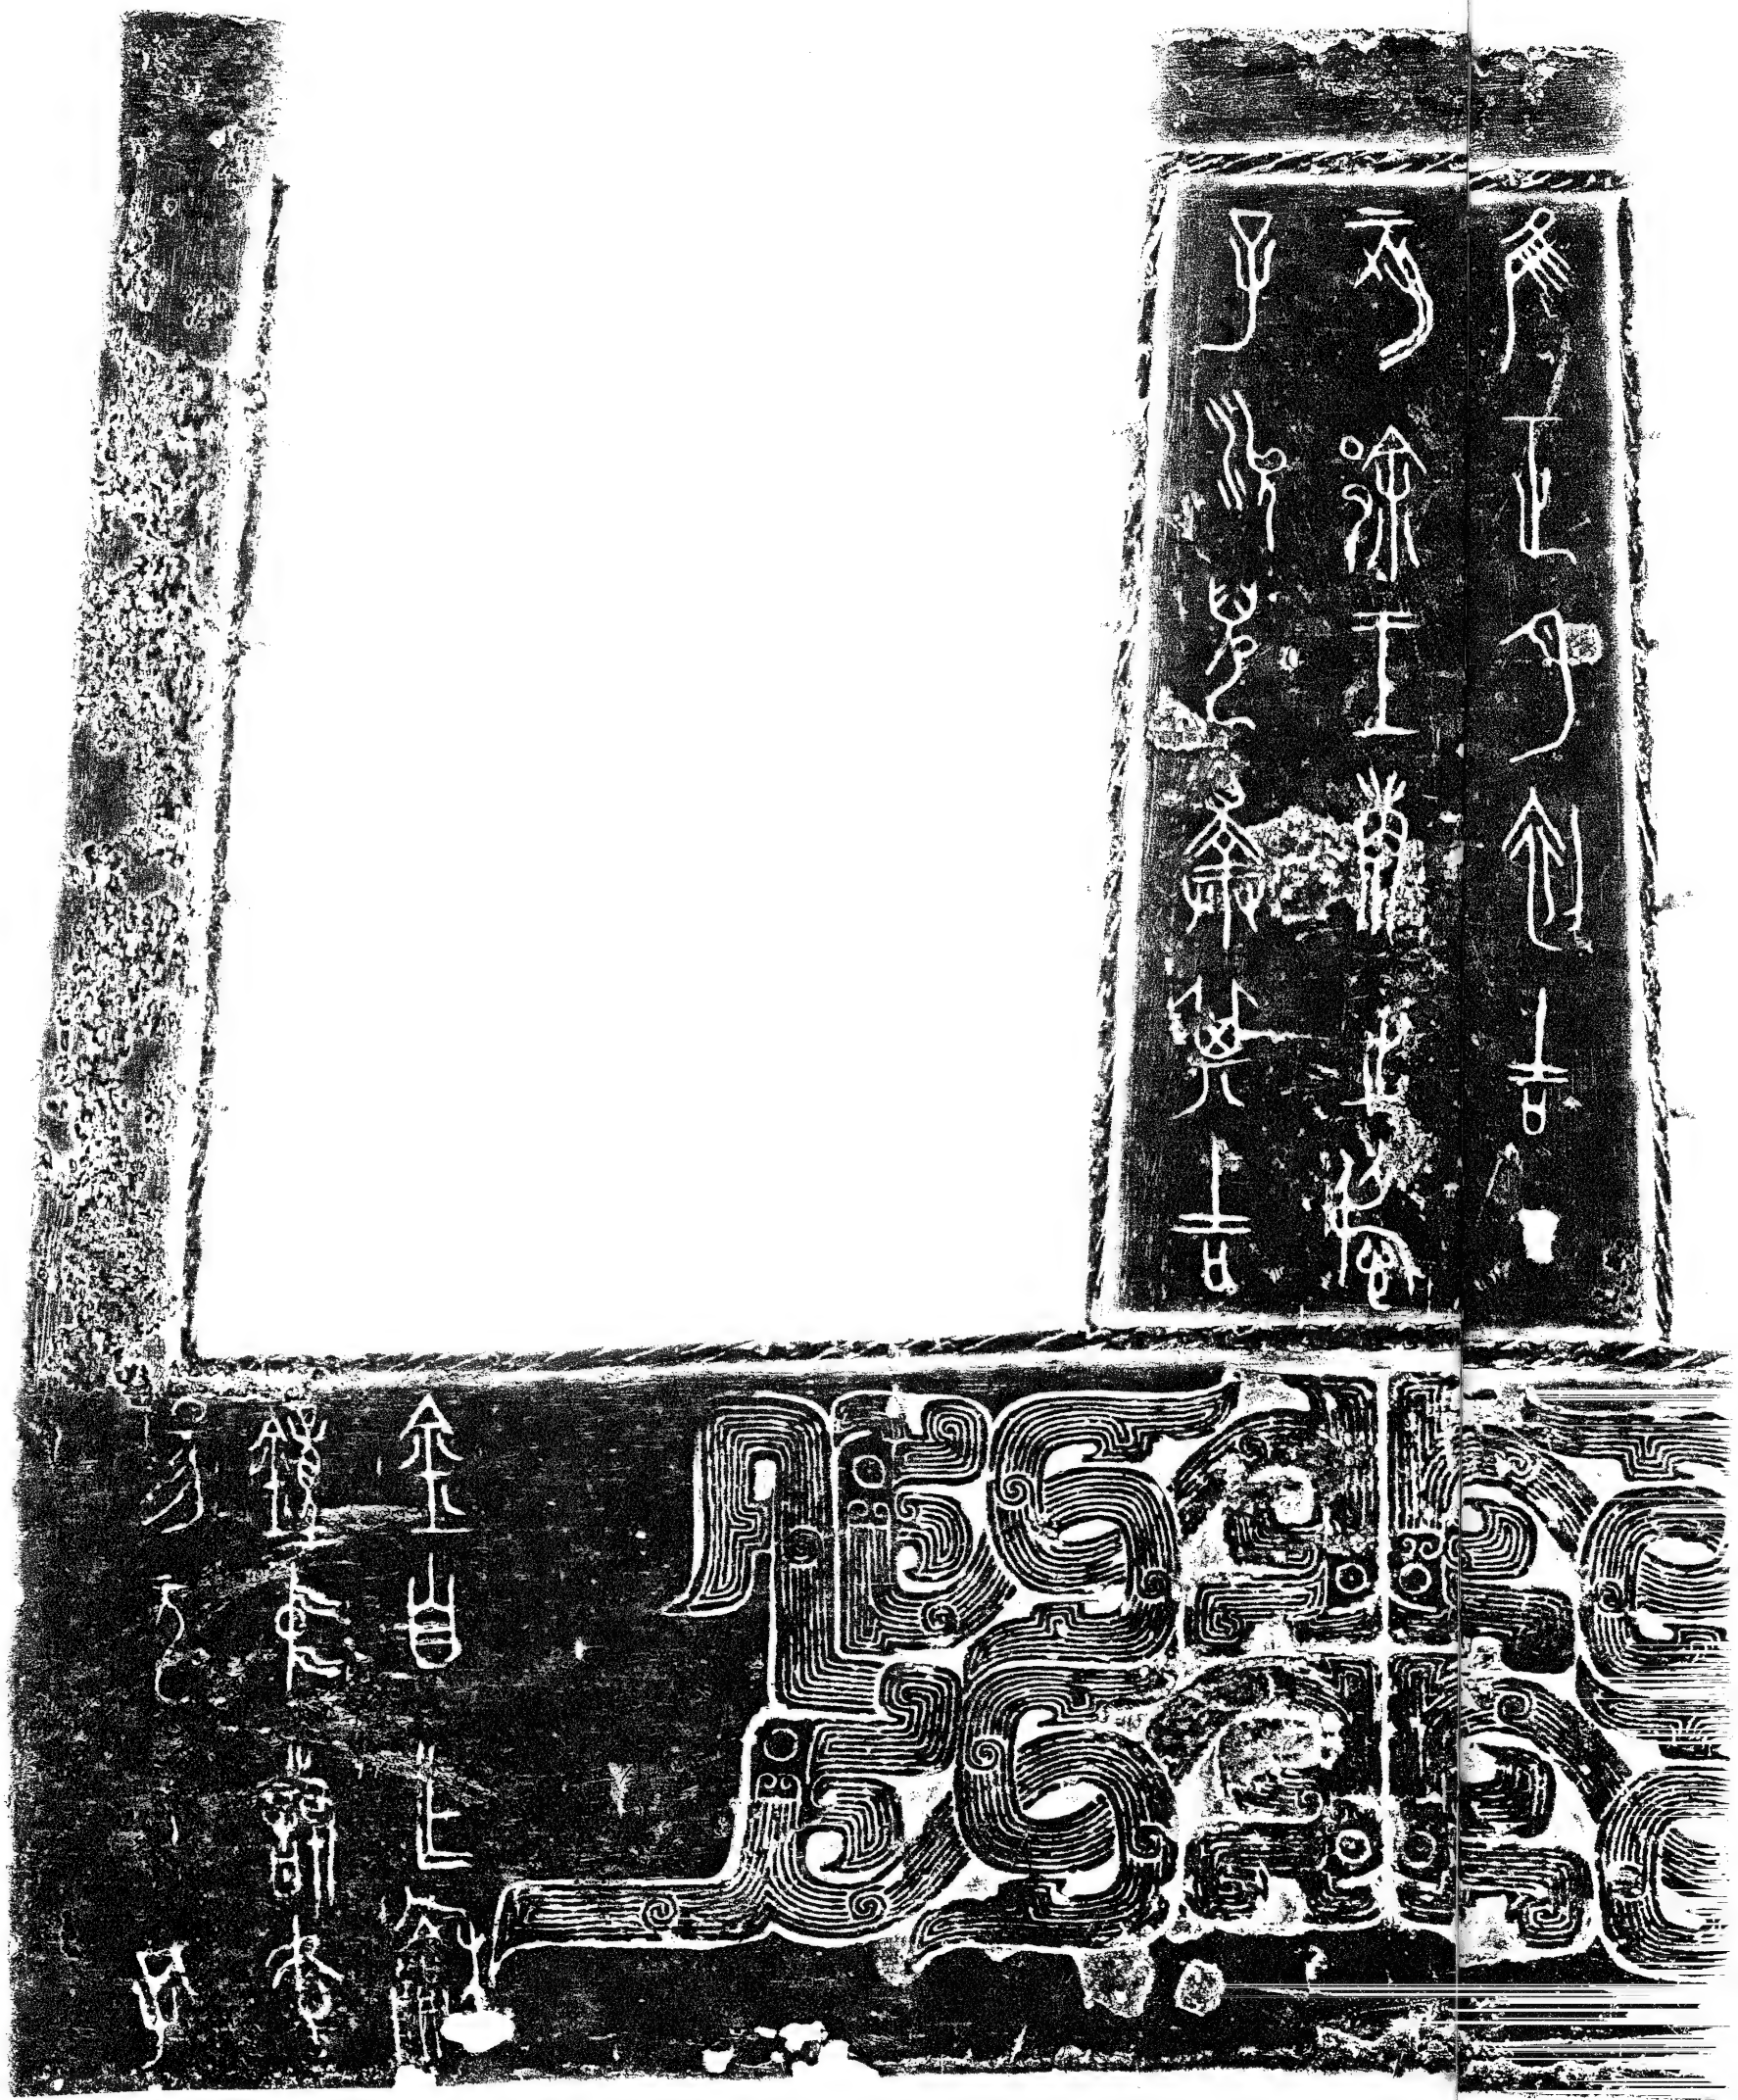 隹正月初吉丁
亥郐王庚之淑
子沇兒擇其吉
金自乍龢
鐘中
昜元鳴孔